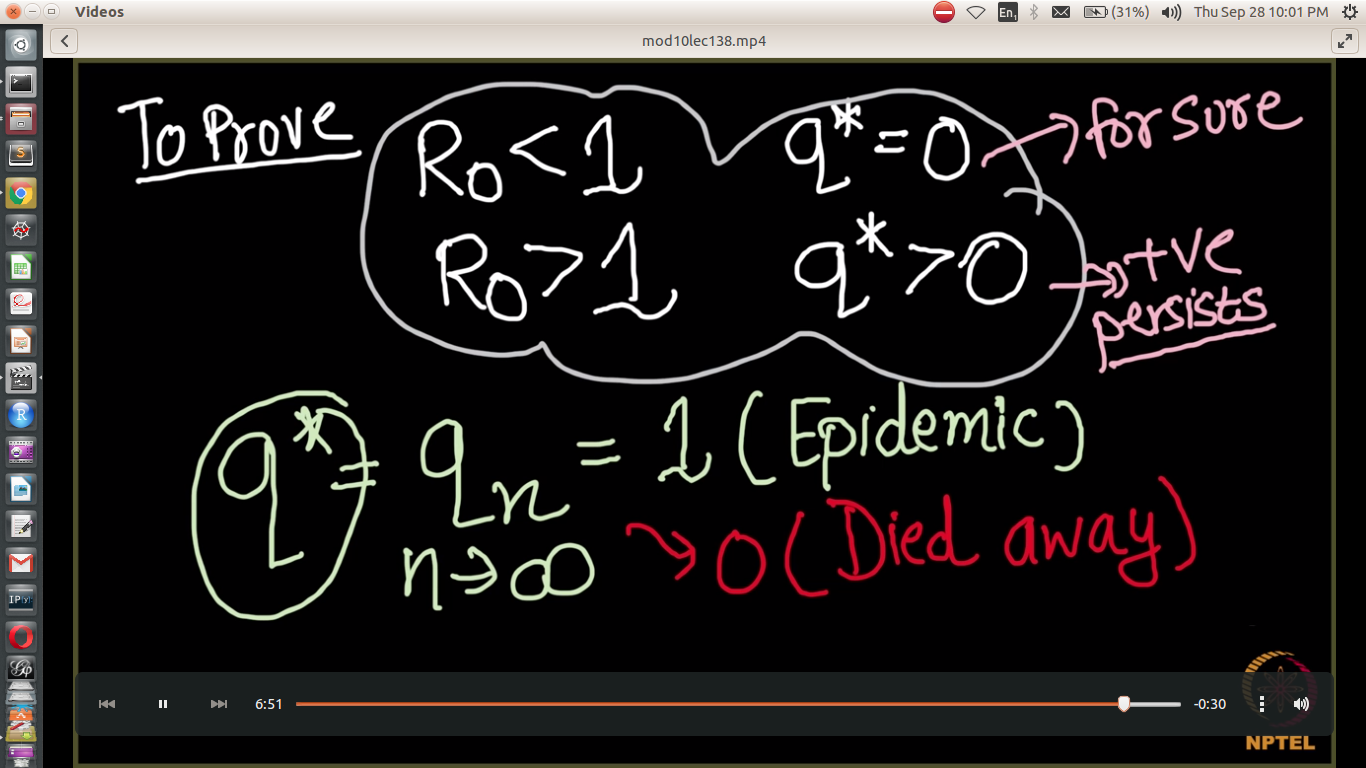 Videos
En1
(31%)
Thu Sep 28 10:01 PM
mod10lec138.mp4
To Prove
R0 < 1 q* = 0 → for sure
R0 > 1 q* > 0 → +ve
persists
q* = qn = 1 (Epidemic)
n→∞ → 0 (Died away)
6:51
-0:30
NPTEL